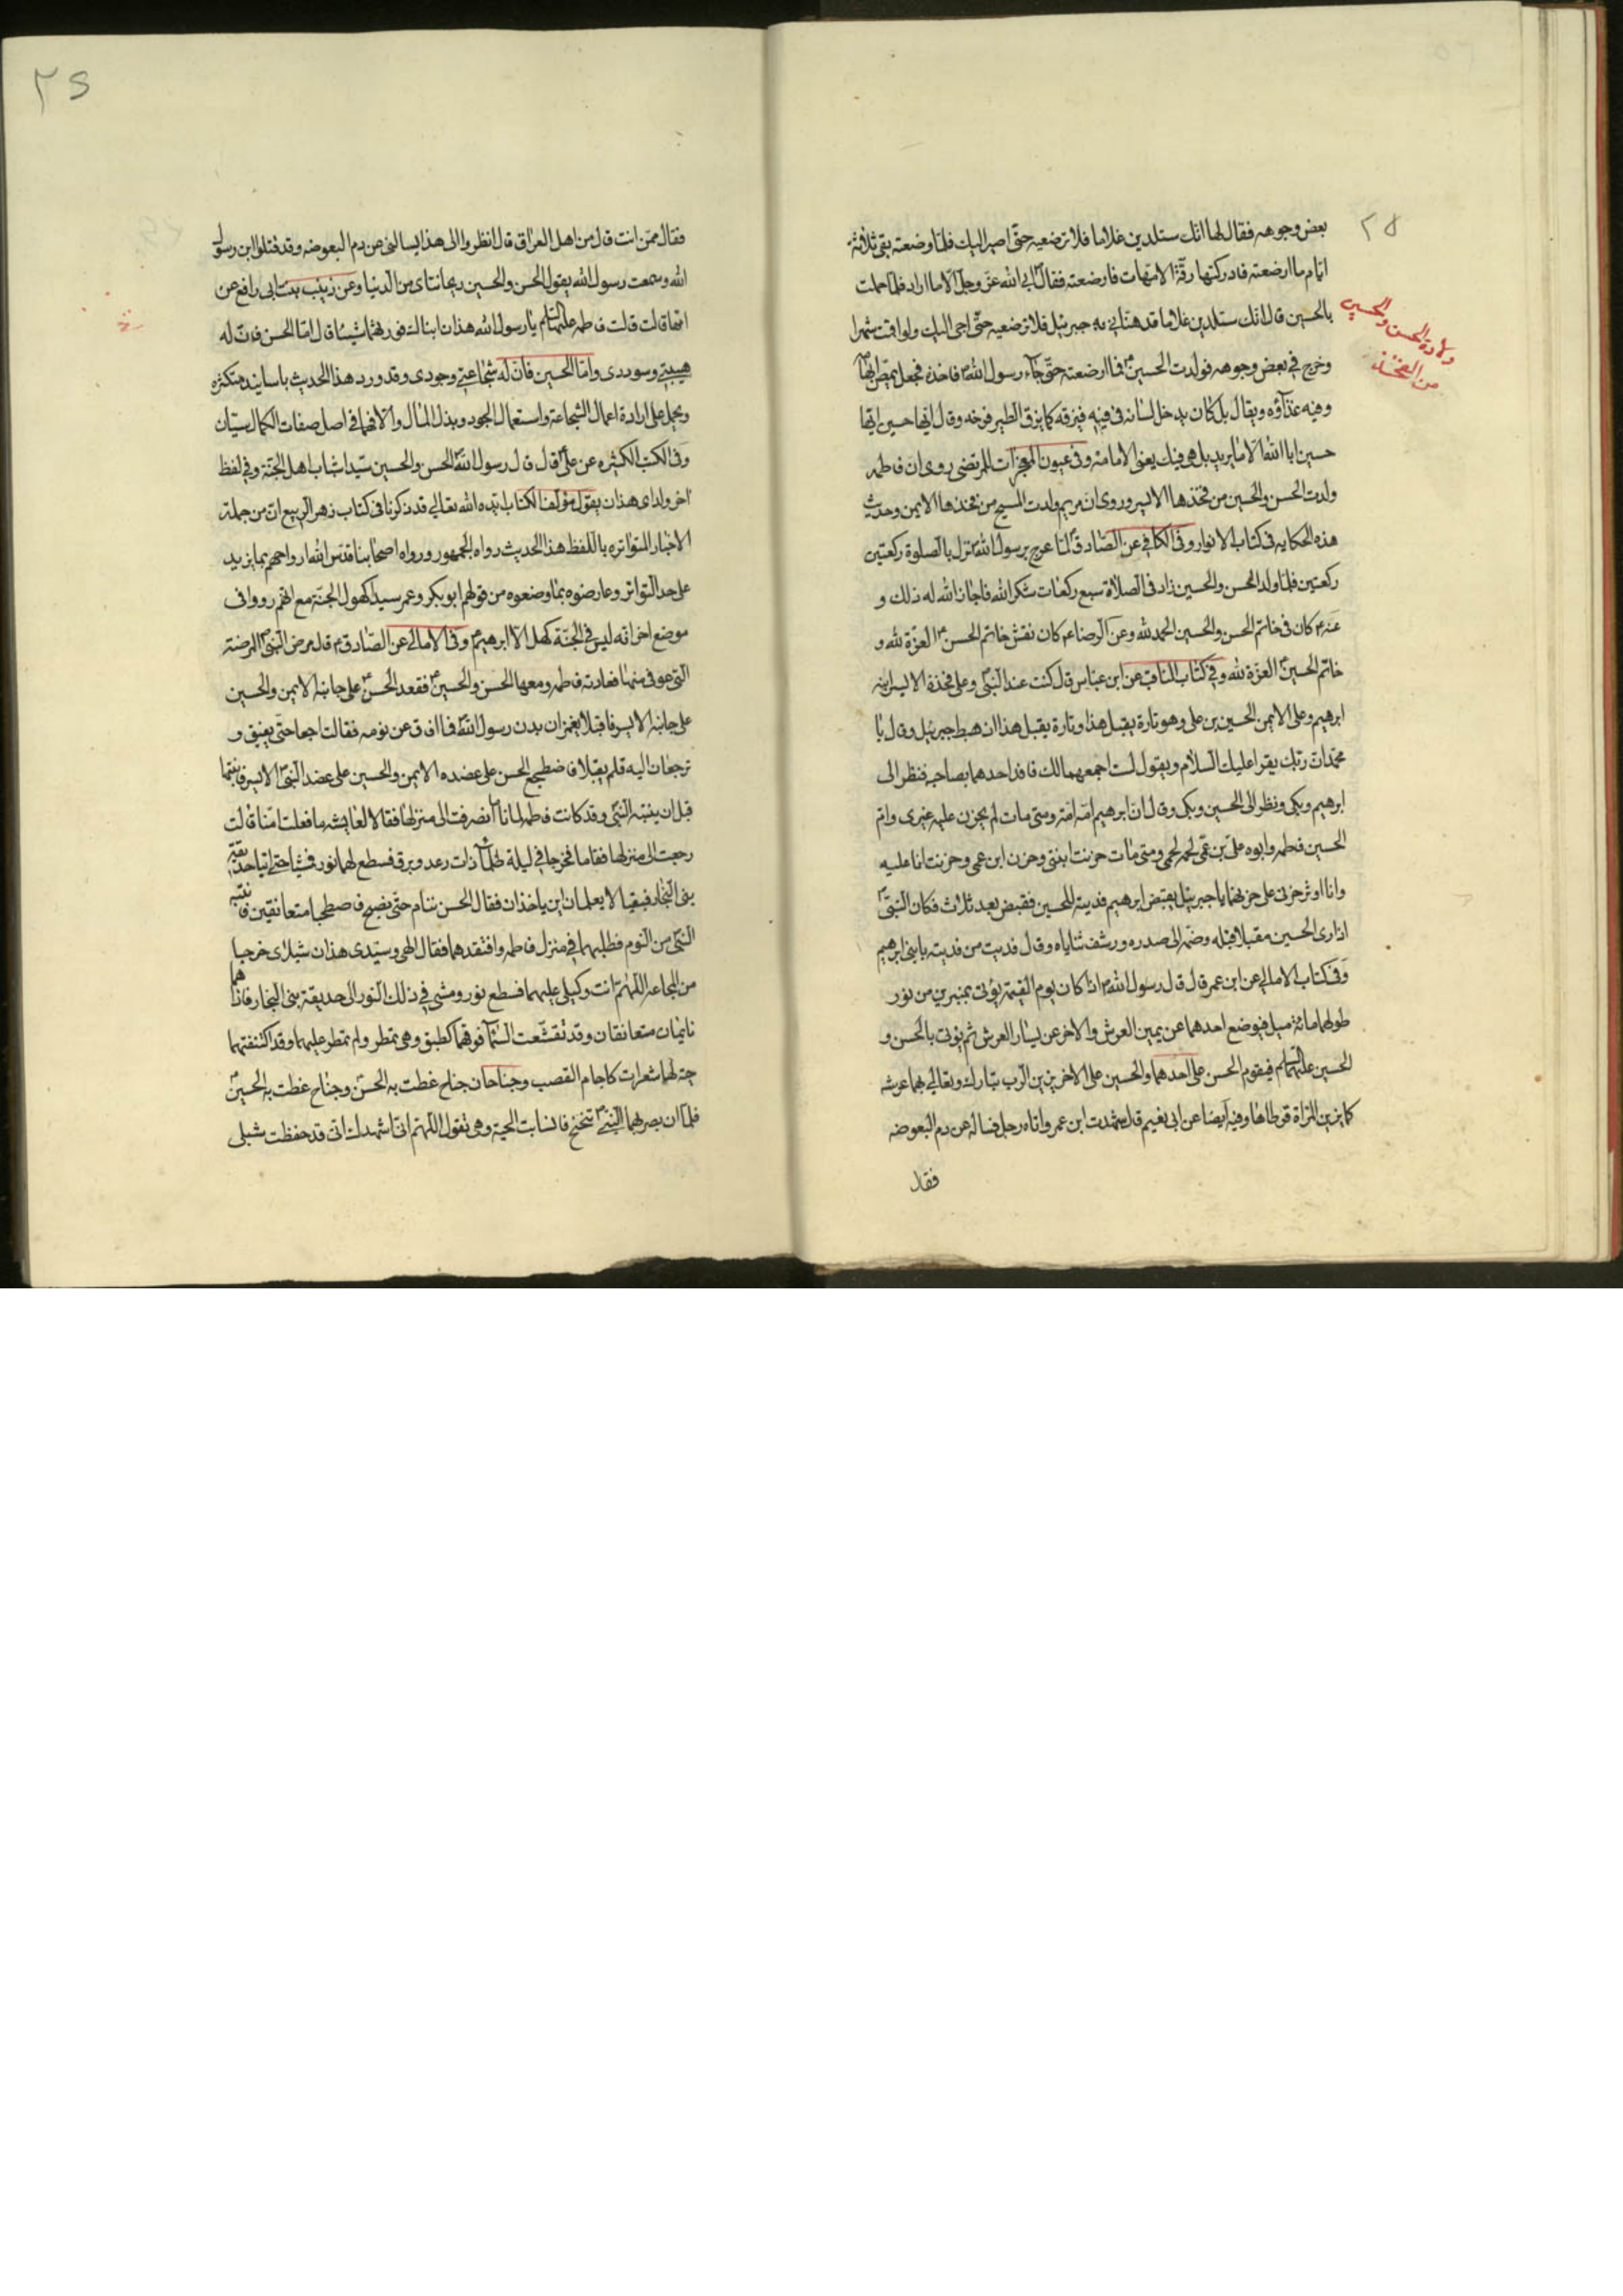 ٢٨
بعض وجوهه فقال لها انك ستلدين غلاما فلا ترضعيه حتى اصير اليك فلما وضعته بقى ثلاثة
ايام ما ارضعته فادركتها رقة الامهات فارضعته فقال ابى الله عز وجل الا ما اراد فلما حملت
بالحسين قال انك ستلدين غلاما قد هنانى به جبرئيل فلا ترضعيه حتى اجئ اليك ولو اقمت شهرا
ولادة الحسن والحسين
من الفخذ
وخرج فى بعض وجوهه فولدت الحسين فما ارضعته حتى جاء رسول الله فاخذه فجعل يمص ابهامه
وفيه غذاؤه ويقال بل كان يدخل لسانه فى فيه فيزقه كما يزق الطير فرخه وقال ايها حسين ايها
حسين ابا الله الا ما يريد بل هى فيك يعنى الامامة وفى عيون المعجزات للمرتضى روى ان فاطمه
ولدت الحسن والحسين من فخذها الايسر وروى ان مريم ولدت المسيح من فخذها الايمن وحديث
هذه الحكايه فى كتاب الانوار وفى الكافى عن الصادق لما عرج برسول الله نزل بالصلوة ركعتين
ركعتين فلما ولد الحسن والحسين زاد فى الصلاة سبع ركعات شكرا لله فاجاز الله له ذلك و
عنه كان فى خاتم الحسن والحسين الحمد لله وعن الرضا كان نقش خاتم الحسن العزة لله و
خاتم الحسين العزة لله وفى كتاب المناقب عن ابن عباس قال كنت عند النبى وعلى فخذه الايسر ابنه
ابرهيم وعلى الايمن الحسين بن على وهو تارة يقبل هذا وتارة يقبل هذا اذ هبط جبرئيل وقال يا
محمد ان ربك يقرا عليك السلام ويقول لست اجمعهما لك فافد احدهما بصاحبه فنظر الى
ابرهيم وبكى ونظر الى الحسين وبكى وقال ان ابرهيم امه امة ومتى مات لم يحزن عليه غيرى وام
الحسين فاطمه وابوه على بن عمى لحمه لحمى ومتى مات حزنت ابنتى وحزن ابن عمى وحزنت انا عليه
وانا اوثر حزنى على حزنهما يا جبرئيل يقبض ابرهيم فديته للحسين فقبض بعد ثلاث فكان النبى
اذا راى الحسين مقبلا قبله وضمه الى صدره ورشف ثناياه وقال فديت من فديته بابنى ابرهيم
وفى كتاب الامالى عن ابن عمر قال قال رسول الله اذا كان يوم القيمة يؤتى بمنبرين من نور
طولهما مائة ميل فيوضع احدهما عن يمين العرش والاخر عن يسار العرش ثم يؤتى بالحسن و
الحسين عليهما السلم فيقوم الحسن على احدهما والحسين على الاخر يزين الرب تبارك وتعالى بهما عرشه
كما يزين المراة قرطاها وفيه ايضا عن ابى نعيم قال شهدت ابن عمر واتاه رجل فساله عن دم البعوضه
فقال
فقال ممن انت قال من اهل العراق قال انظروا الى هذا يسالنى عن دم البعوضه وقد قتلوا ابن رسول
الله وسمعت رسول الله يقول الحسن والحسين ريحانتاى من الدنيا وعن زينب بنت ابى رافع عن
امها قالت قالت فاطمه عليها السلم يا رسول الله هذان ابناك فورثهما شيئا قال اما الحسن فان له
هيبتى وسوددى واما الحسين فان له شجاعتى وجودى وقد ورد هذا الحديث باسانيد متكثره
ويحمل على ارادة اعمال الشجاعة واستعمال الجود وبذل المال والا فهما فى اصل صفات الكمال سيان
وفى الكتب الكثيره عن على قال قال رسول الله الحسن والحسين سيدا شباب اهل الجنة وفى لفظ
اخر ولداى هذان يقول مؤلف الكتاب ايده الله تعالى قد ذكرنا فى كتاب زهر الربيع ان من جملة
الاخبار المتواتره باللفظ هذا الحديث رواه الجمهور ورواه اصحابنا قدس الله ارواحهم بما يزيد
على حد التواتر وعارضوه بما وضعوه من قولهم ابو بكر وعمر سيدا كهول الجنة مع انهم رووا فى
موضع اخر انه ليس فى الجنة كهل الا ابرهيم وفى الامالى عن الصادق قال مرض النبى المرضة
التى عوفى منها فعادته فاطمه ومعها الحسن والحسين فقعد الحسن على جانبه الايمن والحسين
على جانبه الايسر فاقبلا يغمزان بدن رسول الله فما افاق عن نومه فقالت ارجعا حتى يفيق و
ترجعان اليه فلم يقبلا فاضطجع الحسن على عضده الايمن والحسين على عضد النبى الايسر فانتبها
قبل ان ينتبه النبى وقد كانت فاطمه لما ناما انصرفت الى منزلها فقالا لعايشه ما فعلت امنا قالت
رجعت الى منزلها فقاما فخرجا فى ليلة ظلماء ذات رعد وبرق فسطع لهما نور فمشيا حتى اتيا حديقة
بنى النجار فبقيا لا يعلمان اين ياخذان فقال الحسن ننام حتى نصبح فاضطجعا متعانقين فانتبه
النبى من النوم فطلبهما فى منزل فاطمه وافتقدهما فقال الهى وسيدى هذان شبلاى خرجا
من المجاعه اللهم انت وكيلى عليهما فسطع نور ومشى فى ذلك النور الى حديقة بنى النجار فاذا هما
نايمان متعانقان وقد تقشعت السماء فوقهما كطبق وهى تمطر ولم تمطر عليهما وقد اكتنفتهما
حية لها شعرات كاجام القصب وجناحان جناح غطت به الحسن وجناح غطت به الحسين
فلما ان بصر بهما النبى تنحنح فانسابت الحية وهى تقول اللهم انى اشهدك انى قد حفظت شبلى